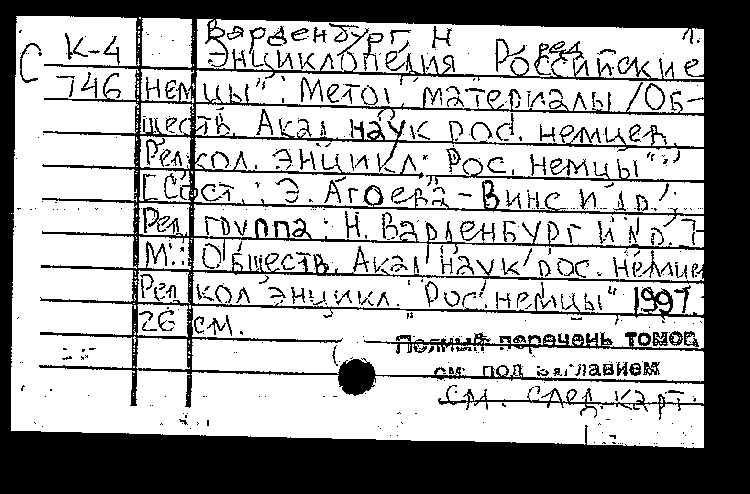 Варденбург, Н ред. 1.
С К-4 Энциклопедия Российские
746 немцы": Метод. материалы /Об-
ществ. Акад. наук рос. немцев.
Ред.кол. энцикл. "Рос. немцы";
[Сост.: Э. Агоева-Винс и др.;
Ред. группа: Н. Варденбург и др.]-
М.: Обществ. Акад. наук рос. немцев
Ред кол энцикл. "Рос. немцы" 1997.
26 см.
Полный перечень томов
см. под заглавием
см. след. карт.